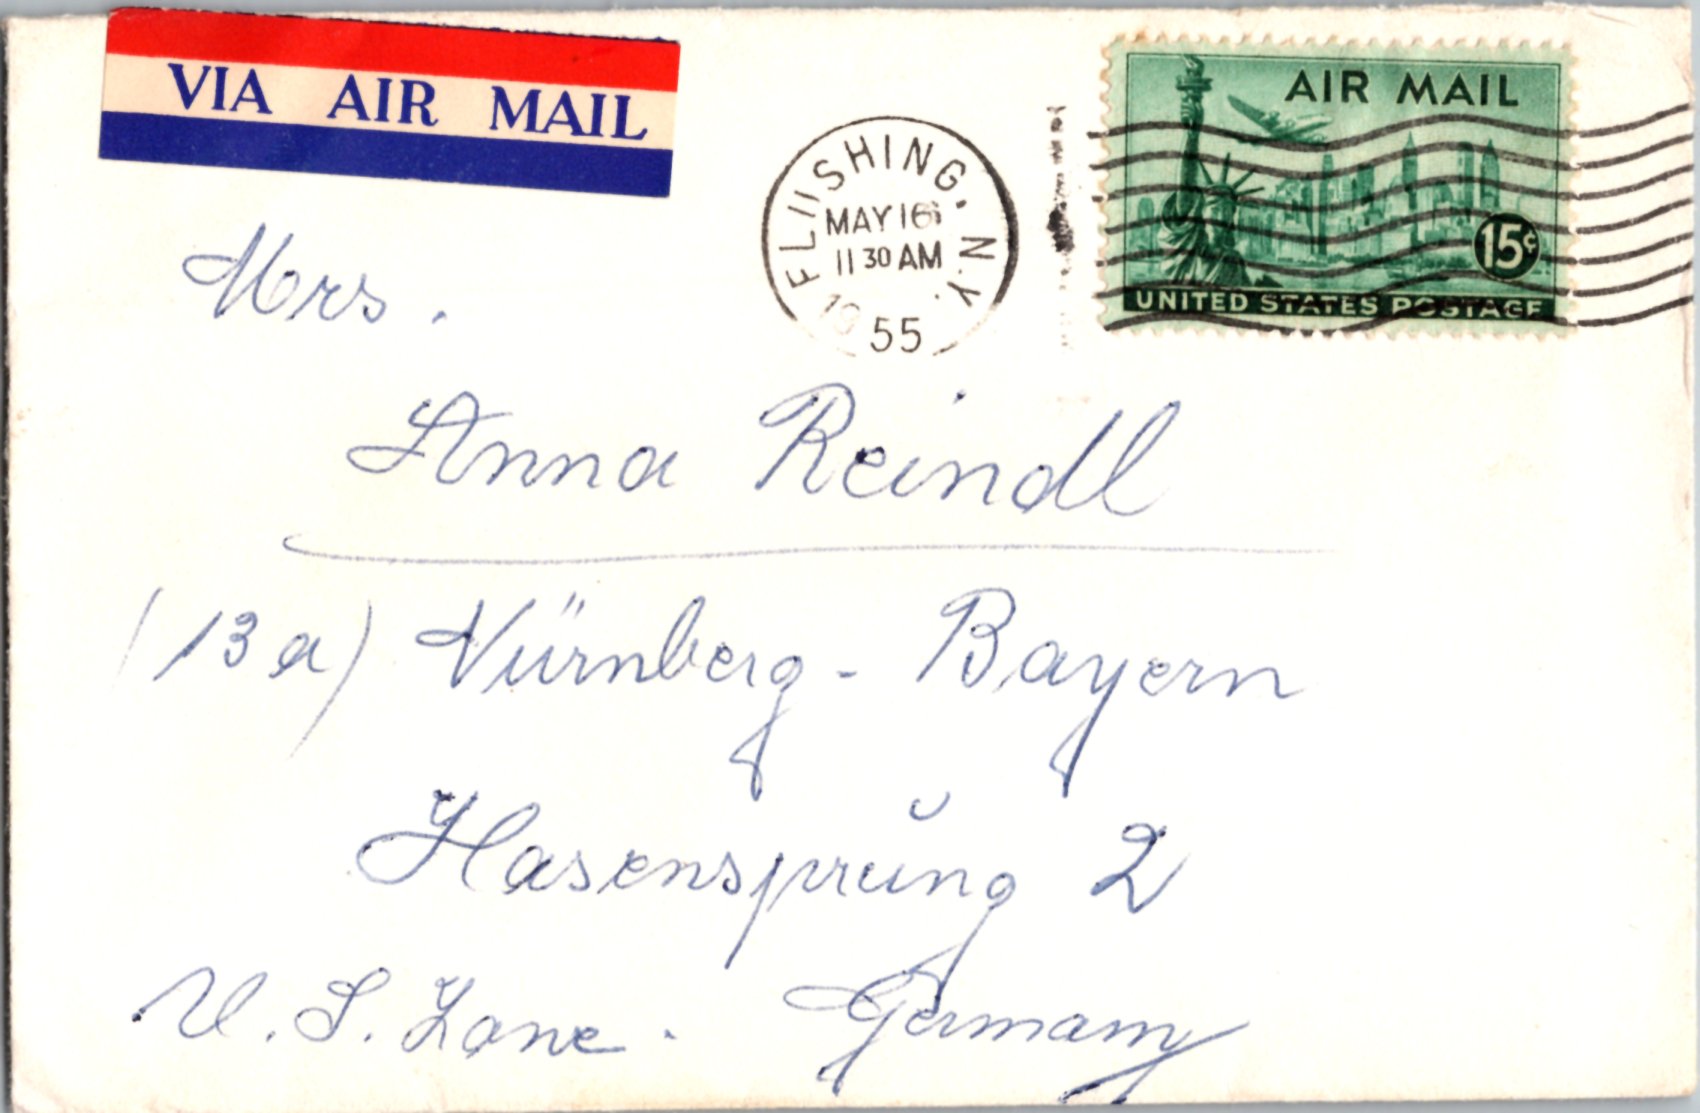 VIA AIR MAIL
FLUSHING, N.Y.
MAY 16
11 30 AM
1955
AIR MAIL
15¢
UNITED STATES POSTAGE
Mrs.
Anna Reindl
(13a) Nürnberg - Bayern
Hasensprŭng 2
U. S. Zone. Germany